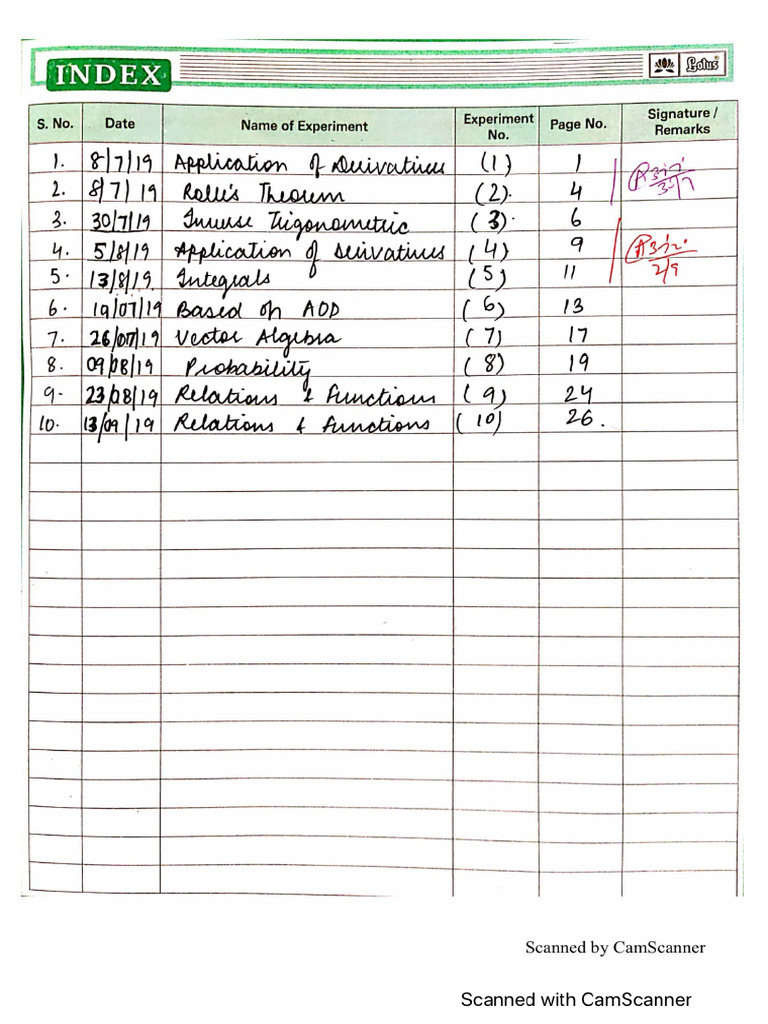 INDEX
Lotus
S. No. Date Name of Experiment Experiment No. Page No. Signature / Remarks
1. 8/7/19 Application of Derivatives (1) 1
2. 8/7/19 Rolle's Theorem (2). 4
3. 30/7/19 Inverse Trigonometric (3). 6
4. 5/8/19 Application of Derivatives (4) 9
5. 13/8/19 Integrals (5) 11
6. 19/07/19 Based on AOD (6) 13
7. 26/07/19 Vector Algebra (7) 17
8. 09/08/19 Probability (8) 19
9. 23/08/19 Relations & Functions (9) 24
10. 13/09/19 Relations & Functions (10) 26.
2/9
Scanned by CamScanner
Scanned with CamScanner